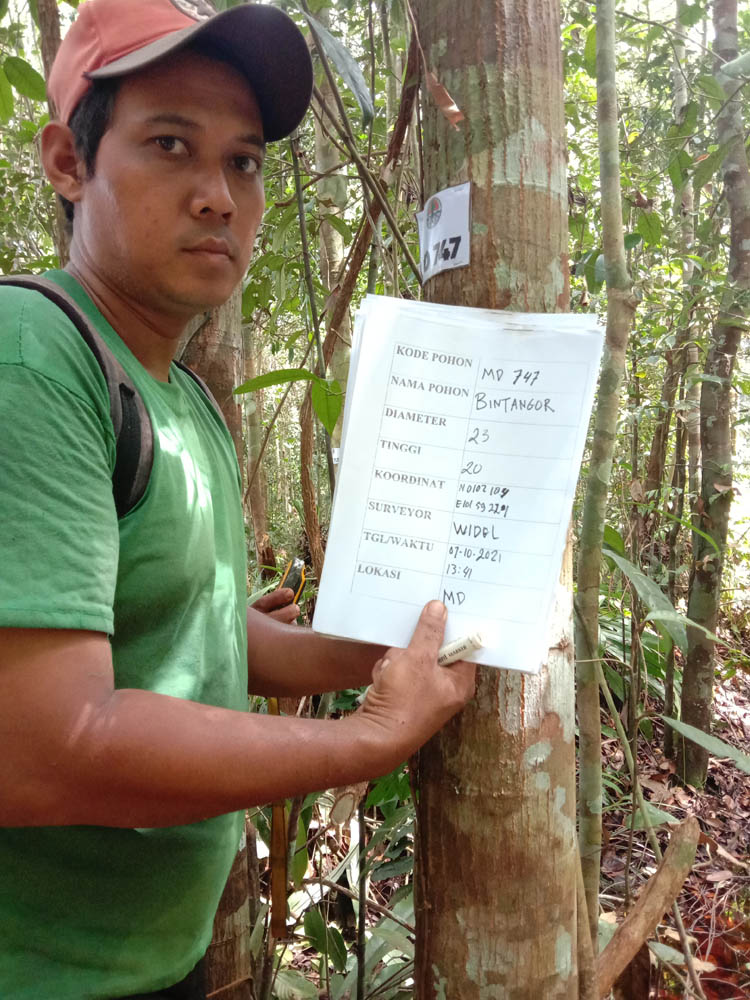 D 747
KODE POHON MD 747
NAMA POHON BINTANGOR
DIAMETER 23
TINGGI 20
KOORDINAT N0102104
E101592201
SURVEYOR WIDOL
TGL/WAKTU 07-10-2021
13:41
LOKASI MD
MARKER